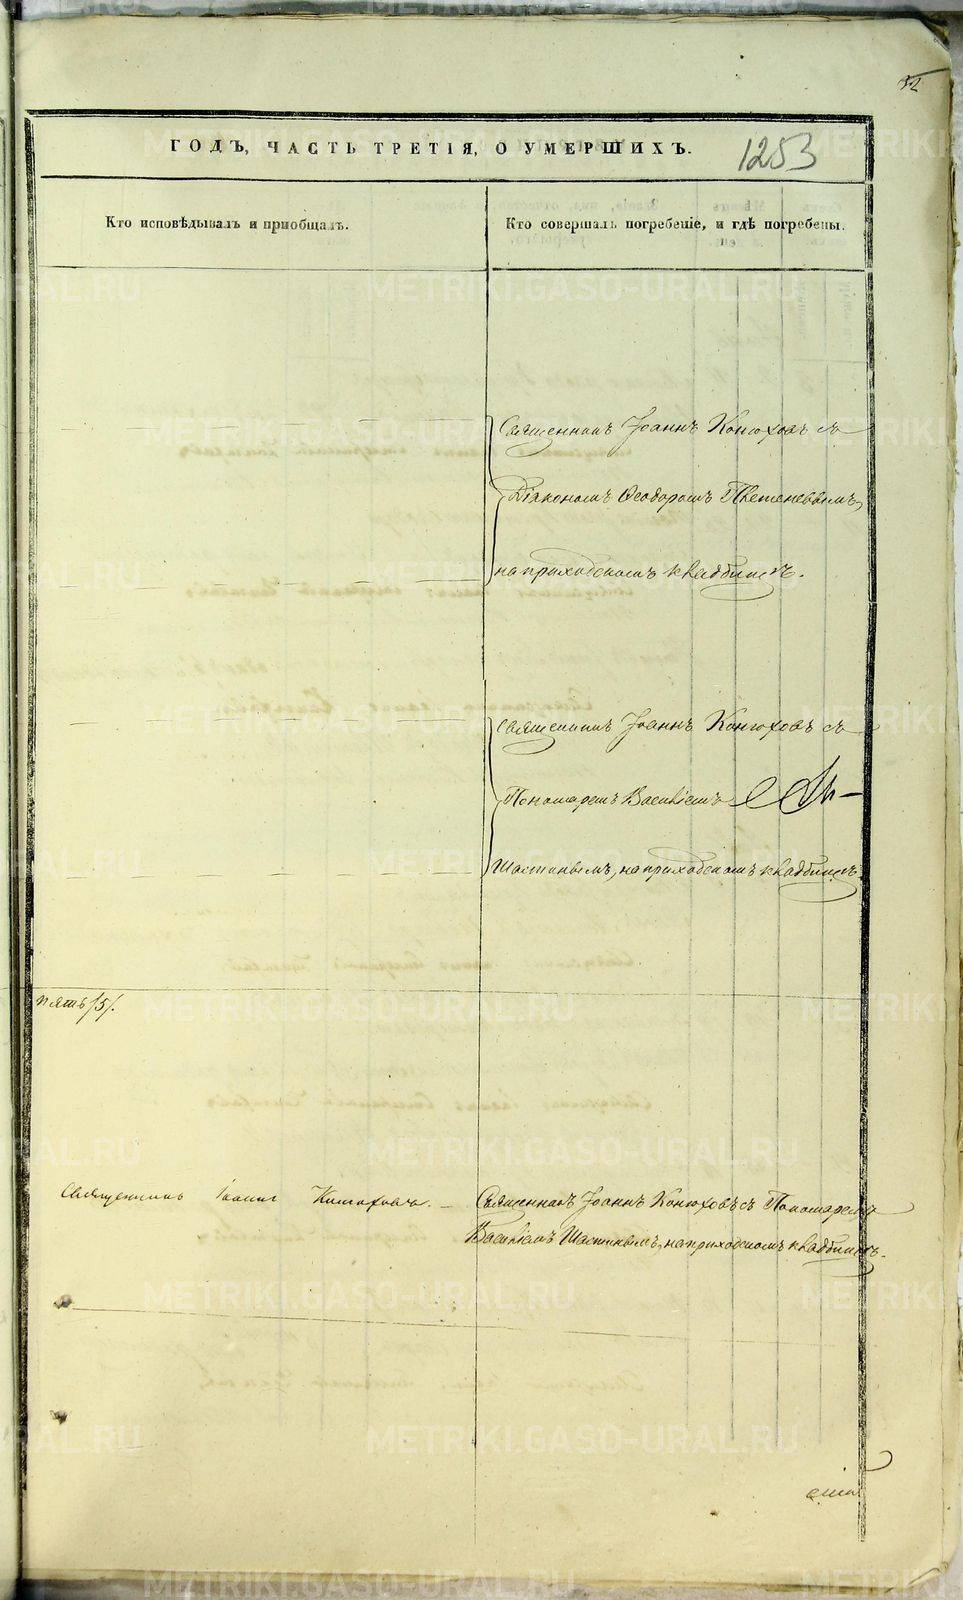 32
ГОДЪ, ЧАСТЬ ТРЕТІЯ, О УМЕРШИХЪ.
1253
Кто исповѣдывалъ и пріобщалъ.
Кто совершалъ погребеніе, и гдѣ погребены.
Священникъ Іоаннъ Конюховъ съ
Діакономъ Ѳеодоромъ
на приходскомъ кладбищѣ.
Священникъ Іоаннъ Конюховъ съ
Пономаремъ Василіемъ
Шастинымъ, на приходскомъ кладбищѣ.
пять /5/.
Священникъ Іоаннъ Конюховъ.
Священникъ Іоаннъ Конюховъ съ Пономаремъ
Василіемъ Шастинымъ, на приходскомъ кладбищѣ.
METRIKI.GASO-URAL.RU